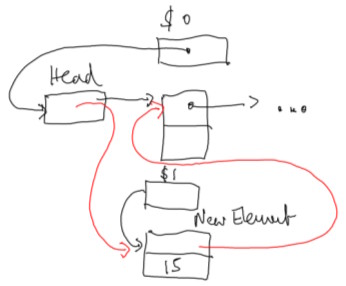 $0
Head
...
$1
New Element
15